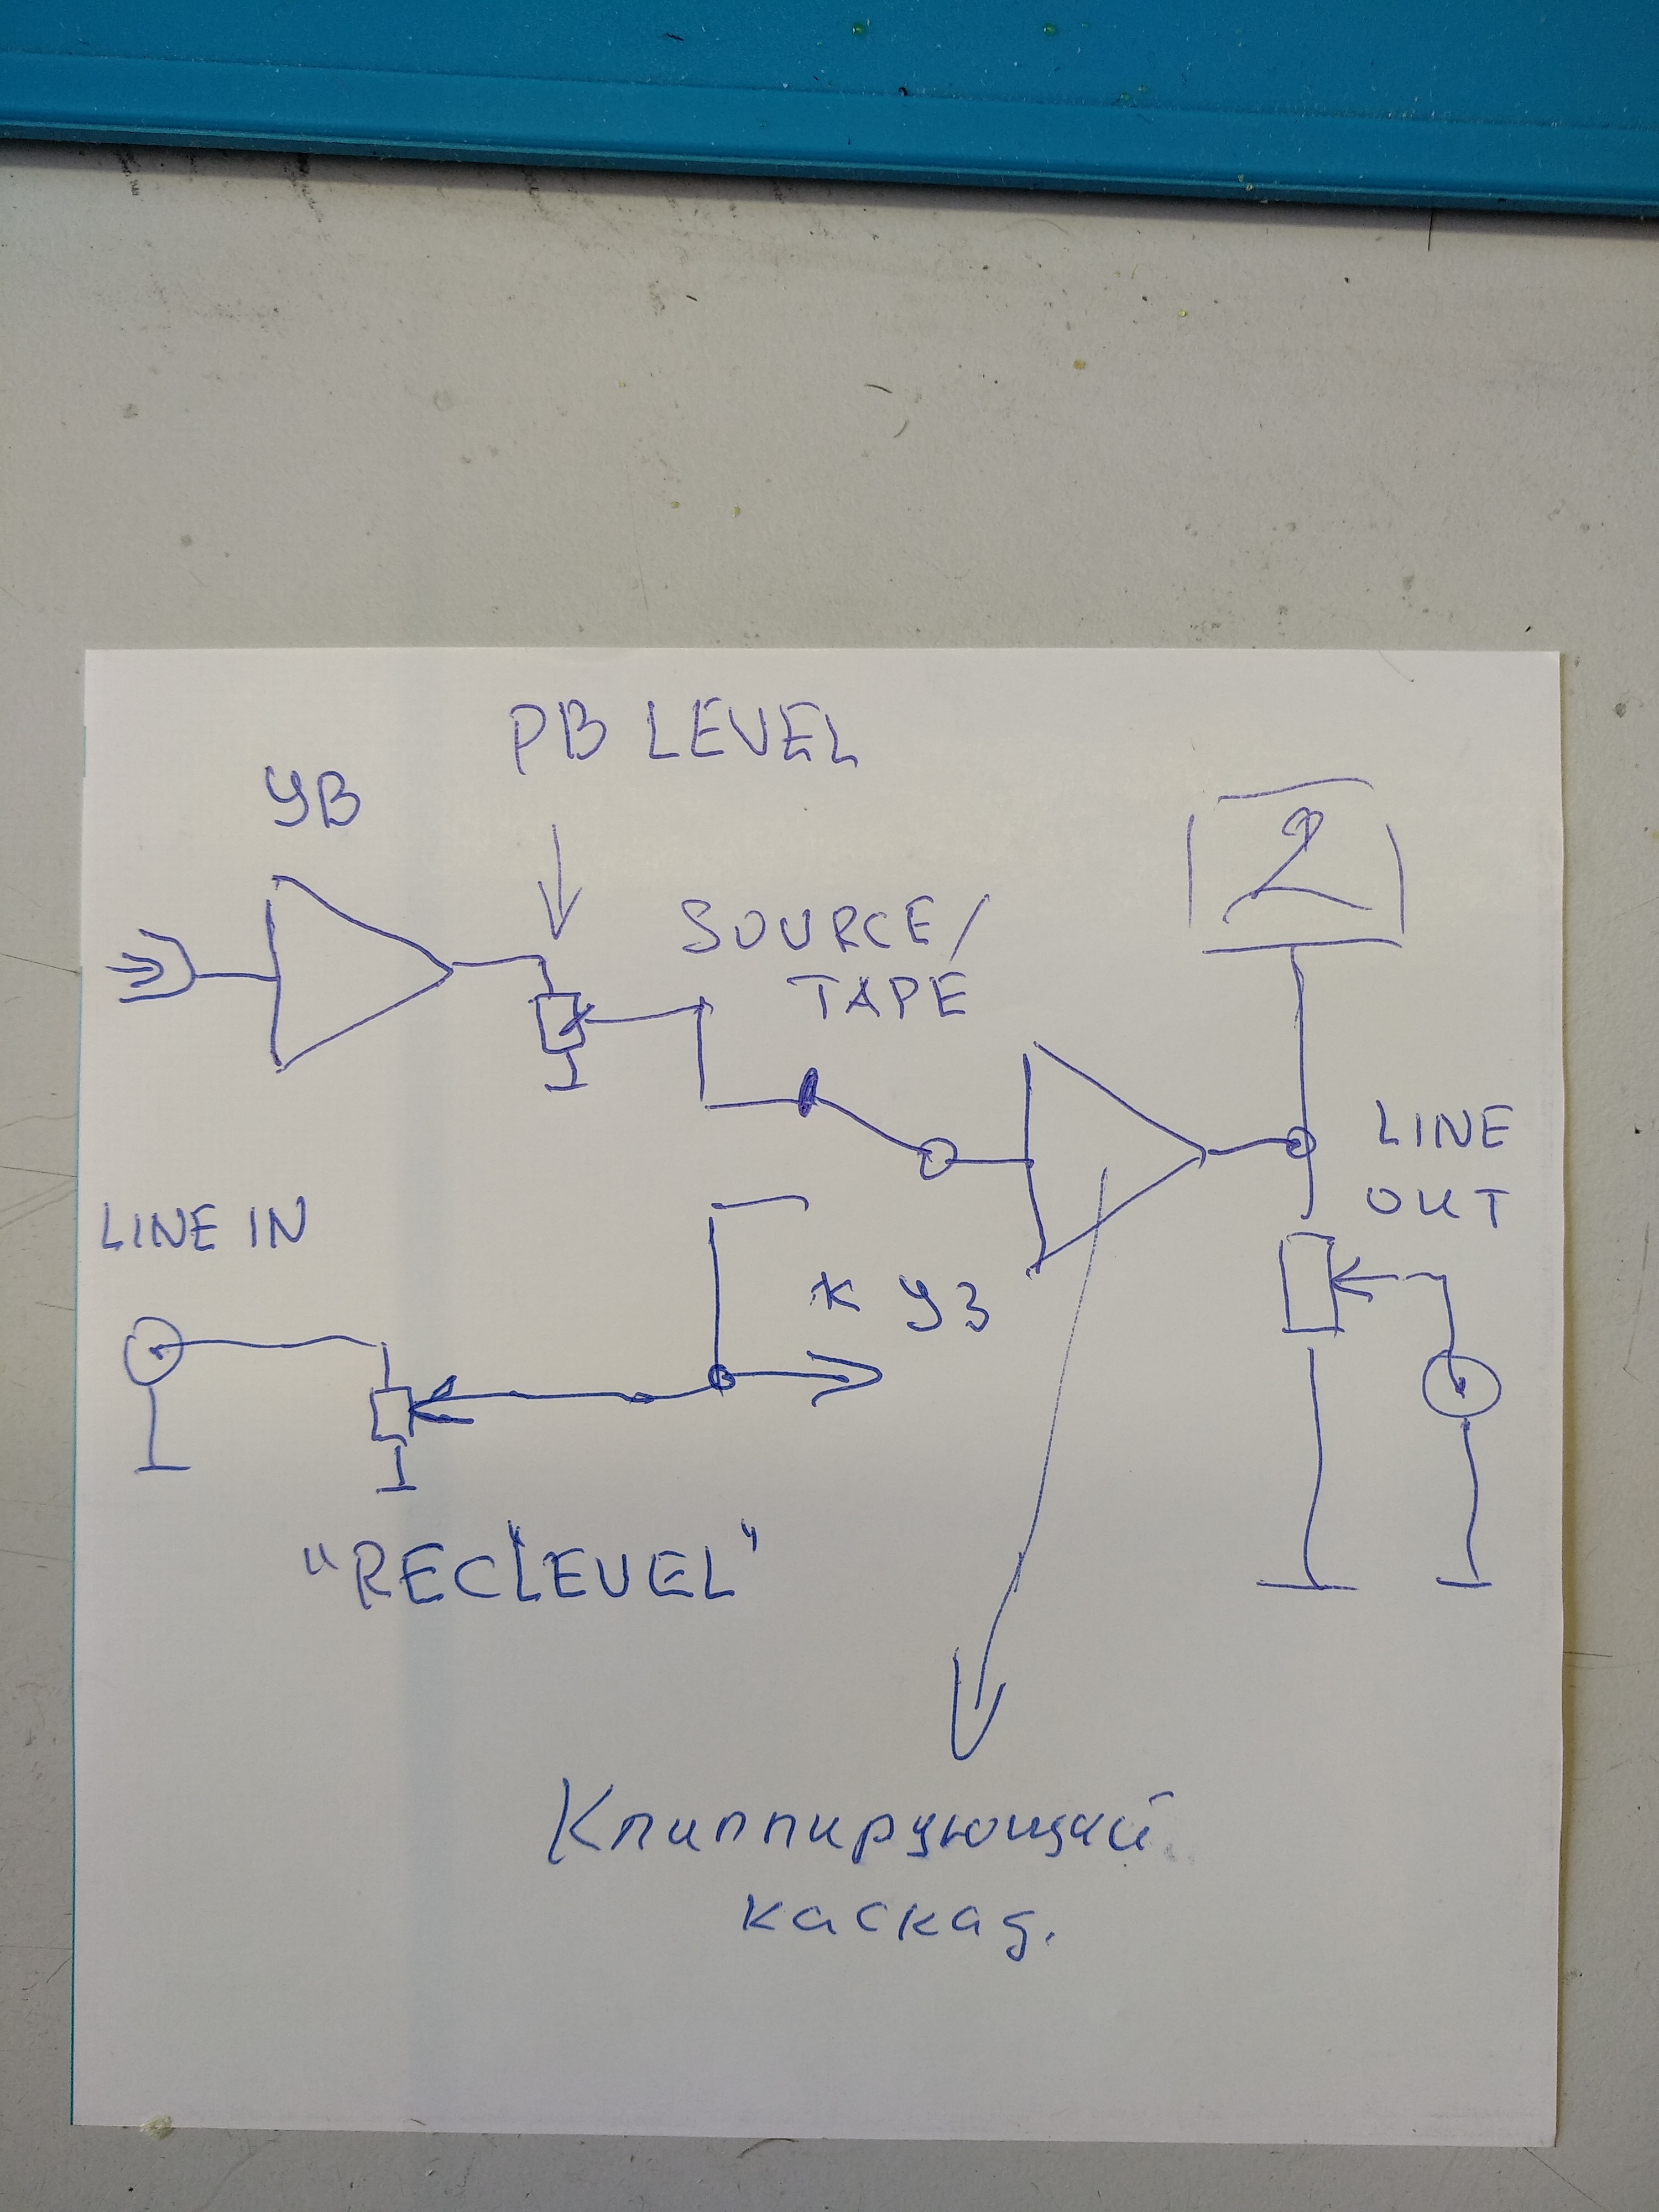 PB LEVEL
УВ
SOURCE/
TAPE
LINE
OUT
LINE IN
* УЗ
"REC LEVEL"
Клиппирующий
каскад.